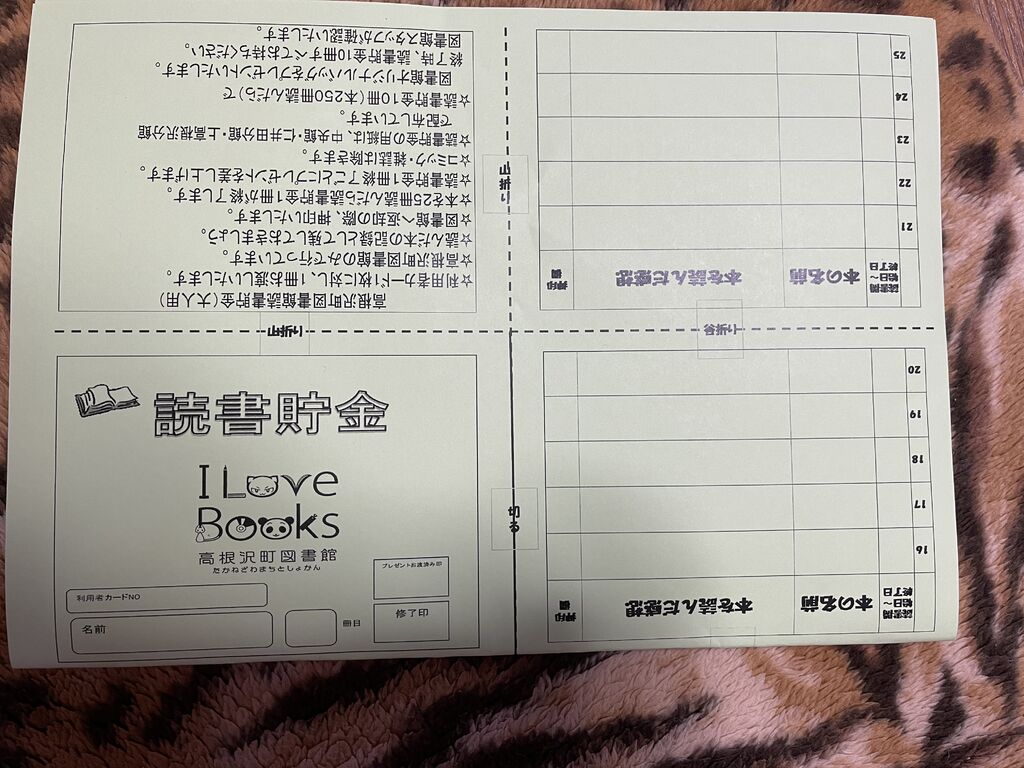 高根沢町図書館読書貯金(大人用)
☆利用者カード1枚に対し、1冊お渡しいたします。
☆高根沢町図書館のみで行っています。
☆読んだ本の記録として残しておきましょう。
☆図書館へ返却の際、押印いたします。
☆本を25冊読んだら読書貯金1冊が終了します。
☆読書貯金1冊終了ごとにプレゼントを差し上げます。
☆コミック・雑誌は除きます。
☆読書貯金の用紙は、中央館・仁井田分館・上高根沢分館
で配布しています。
☆読書貯金10冊(本250冊読んだら)で
図書館オリジナルバッグをプレゼントいたします。
終了時、読書貯金10冊すべてお持ちください。
図書館スタッフが確認いたします。
山折り
読書開
始日～
終了日
本の名前
本を読んだ感想
押印
欄
21
22
23
24
25
山折り
谷折り
読書貯金
I Love
Books
高根沢町図書館
たかねざわまちとしょかん
プレゼントお渡済み印
利用者カードNO
名前
冊目
修了印
切る
読書開
始日～
終了日
本の名前
本を読んだ感想
押印
欄
16
17
18
19
20